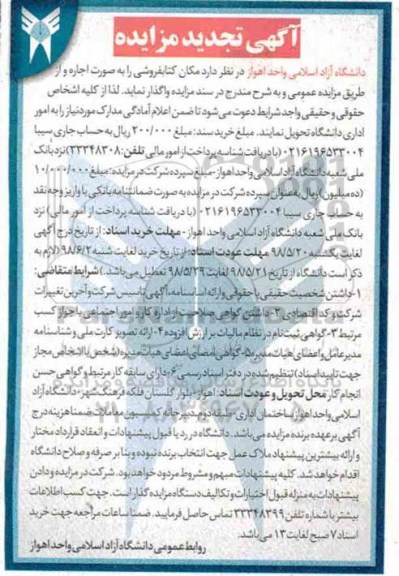 آگهی تجدید مزایده
دانشگاه آزاد اسلامی واحد اهواز در نظر دارد مکان کتابفروشی را به صورت اجاره و از
طریق مزایده عمومی و به شرح مندرج در سند مزایده واگذار نماید. لذا از کلیه اشخاص
حقوقی و حقیقی واجد شرایط دعوت می شود تا ضمن اعلام آمادگی مدارک مورد نیاز را به امور
اداری دانشگاه تحویل نمایند. مبلغ خرید سند: مبلغ ۲۰۰/۰۰۰ ریال به حساب جاری سیبا
۰۲۱۶۱۹۶۵۳۳۰۰۴ (با دریافت شناسه پرداخت از امور مالی تلفن: ۳۳۳۴۸۳۰۸) نزد بانک
ملی شعبه دانشگاه آزاد اسلامی واحد اهواز - مبلغ سپرده شرکت در مزایده: مبلغ ۱۰/۰۰۰/۰۰۰
(ده میلیون) ریال به عنوان سپرده شرکت در مزایده به صورت ضمانتنامه بانکی یا واریز وجه نقد
به حساب جاری سیبا ۰۲۱۶۱۹۶۵۳۳۰۰۴ (با دریافت شناسه پرداخت از امور مالی) نزد
بانک ملی شعبه دانشگاه آزاد اسلامی واحد اهواز - مهلت خرید اسناد: از تاریخ درج آگهی
لغایت یکشنبه ۹۸/۵/۲۰ مهلت عودت اسناد: از تاریخ خرید لغایت شنبه ۹۸/۶/۲ (لازم به
ذکر است دانشگاه از تاریخ ۹۸/۵/۲۱ لغایت ۹۸/۵/۲۹ تعطیل می باشد.) شرایط متقاضی:
۱- داشتن شخصیت حقیقی یا حقوقی و ارائه اساسنامه، آگهی تاسیس شرکت و آخرین تغییرات
شرکت و کد اقتصادی ۲- داشتن گواهی صلاحیت از اداره کار و امور اجتماعی یا جواز کسب
مرتبط ۳- گواهی ثبت نام در نظام مالیات بر ارزش افزوده ۴- ارائه تصویر کارت ملی و شناسنامه
مدیرعامل و اعضای هیات مدیره ۵- گواهی امضای اعضای هیات مدیره (شخص یا اشخاص مجاز
جهت تایید اسناد) تنظیم شده در دفتر اسناد رسمی ۶- دارای سابقه کار مرتبط و گواهی حسن
انجام کار محل تحویل و عودت اسناد: اهواز - بلوار گلستان فلکه فرهنگشهر - دانشگاه آزاد
اسلامی واحد اهواز ساختمان اداری طبقه دوم دبیرخانه کمیسیون معاملات ضمنا هزینه درج
آگهی بر عهده برنده مزایده می باشد. دانشگاه در رد یا قبول پیشنهادات و انعقاد قرارداد مختار
و ارائه بیشترین پیشنهاد ملاک عمل جهت انتخاب برنده نبوده و بنا بر صرفه و صلاح دانشگاه
اقدام خواهد شد. کلیه پیشنهادات مبهم و مشروط مردود خواهد بود. شرکت در مزایده و دادن
پیشنهادات به منزله قبول اختیارات و تکالیف دستگاه مزایده گذار است. جهت کسب اطلاعات
بیشتر با شماره تلفن ۳۳۳۴۸۳۹۹ تماس حاصل فرمایید. ضمنا ساعات مراجعه جهت خرید
اسناد ۷ صبح لغایت ۱۳ می باشد.
روابط عمومی دانشگاه آزاد اسلامی واحد اهواز